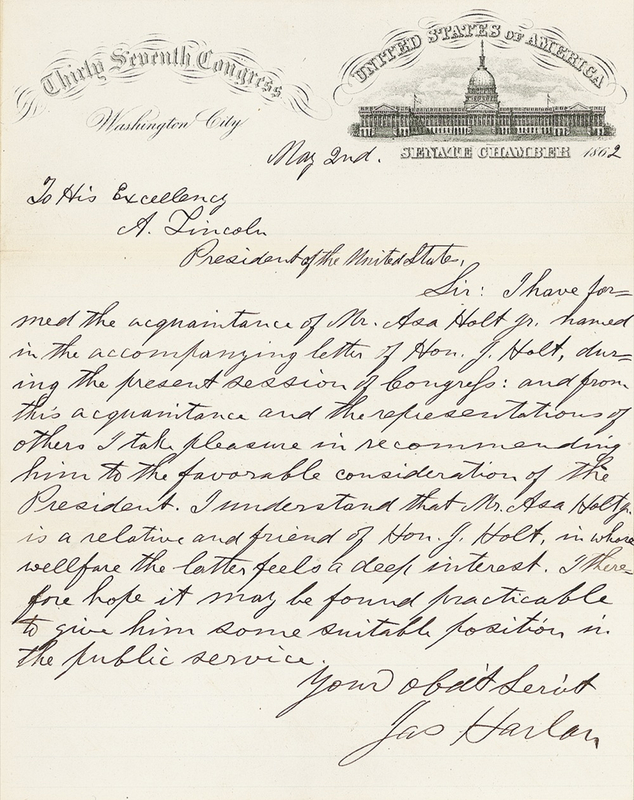 Thirty Seventh Congress
Washington City
UNITED STATES OF AMERICA
SENATE CHAMBER 1862
May 2nd.
To His Excellency
A. Lincoln
President of the United States,
Sir: I have for=
med the acquaintance of Mr. Asa Holt jr. named
in the accompanying letter of Hon. J. Holt, dur=
ing the present session of Congress: and from
this acquaintance and the representations of
others I take pleasure in recommending
him to the favorable consideration of the
President. I understand that Mr. Asa Holt jr.
is a relative and friend of Hon. J. Holt, in whose
wellfare the latter feels a deep interest. I there=
fore hope it may be found practicable
to give him some suitable position in
the public service.
Your obdt Servt
Jas Harlan